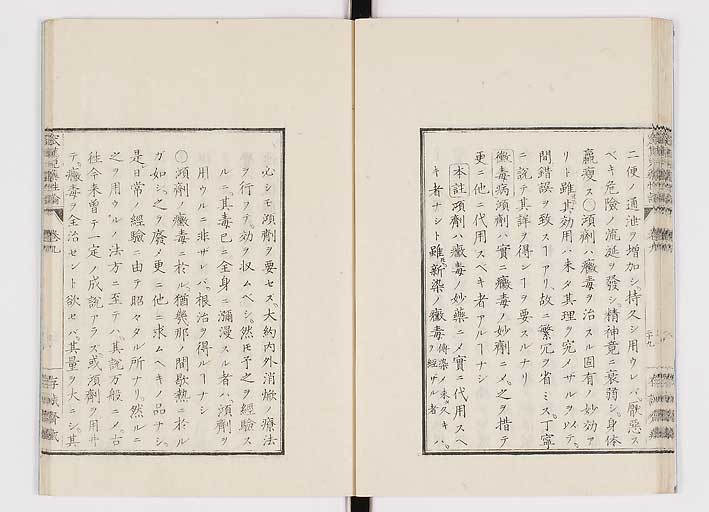 二便ノ通泄ヲ増加シ。持久シ用ウレバ。厭惡ス
ベキ危險ノ流涎ヲ發シ。精神竟ニ衰弱シ。身体
羸痩ス〇澒劑ハ黴毒ヲ治スル固有ノ妙効ヲ
リト雖𪜈。其効用ハ未タ其理ヲ究メザルヲ以テ。
間錯誤ヲ致スヿアリ。故ニ繁冗ヲ省ミス。丁寧
ニ説テ其詳ヲ得ンヿヲ要スルナリ
黴毒病澒劑ハ實ニ黴毒ノ妙劑ニメ。之ヲ措テ
更ニ他ニ代用スベキ者アルヿナシ
本註澒劑ハ黴毒ノ妙藥ニメ實ニ代用スヘ
キ者ナシト雖𪜈。新染ノ黴毒傳染ノ未久キハ。ヲ經ザル者
心シモ澒劑ヲ要セス。大約内外消焮ノ療法
ヲ行フテ。効ヲ収ムベシ。然𪜈予之ヲ經驗ス
ルニ。其毒已ニ全身ニ瀰漫スル者ハ。澒劑ヲ
用ウルニ非ザレバ。根治ヲ得ルヿナシ
〇澒劑ノ黴毒ニ於ル。猶幾那ノ間歇熱ニ於ル
ガ如シ。之ヲ廢メ更ニ他ニ求ムヘキノ品ナシ。
是。日常ノ經驗ニ由テ昭々タル所ナリ。然ルニ
之ヲ用ウルノ法方ニ至テハ。其説万般ニメ。古
徃今来曽テ一定ノ成説アラズ。或澒劑ヲ用井
テ。黴毒ヲ全治セント欲セバ。其量ヲ大ニシ。其
卷九